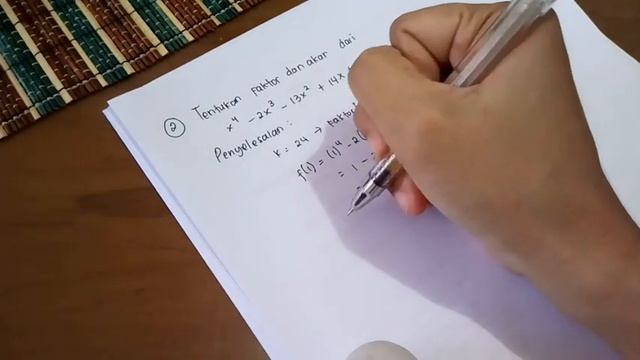 ② Tentukan faktor dan akar dari
x⁴ - 2x³ - 13x² + 14x
Penyelesaian :
k = 24 → faktor
f(1) = (1)⁴ - 2(
= 1 -